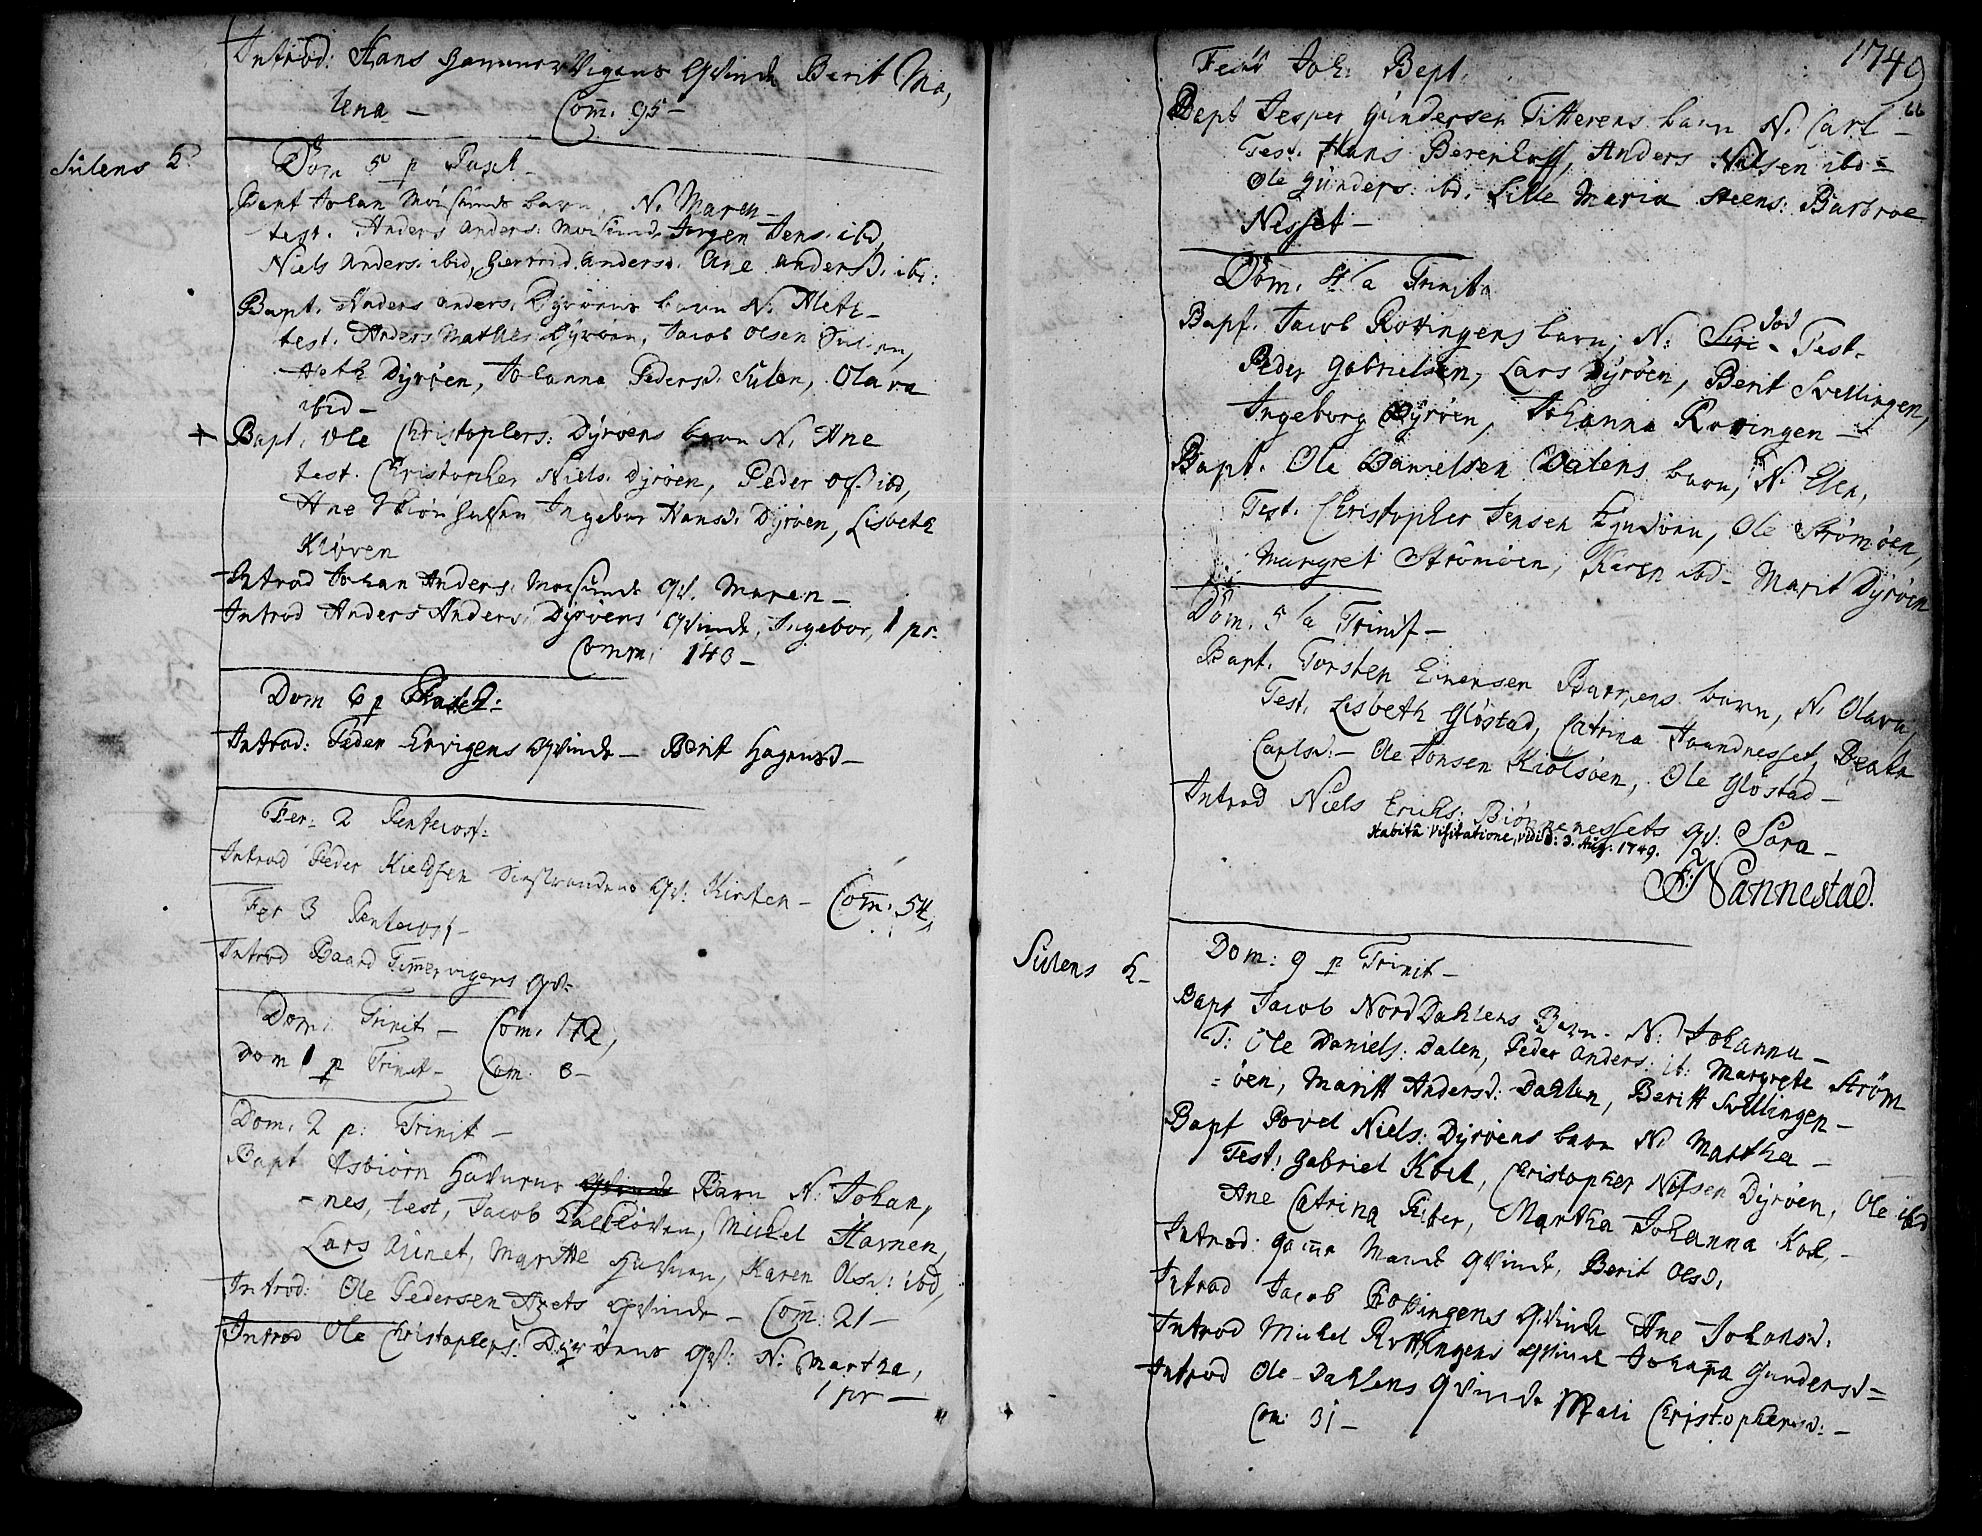 Introd: Hans Hammervigens Qvinde Berit Ma,
lena – Com̄. 95 –
Sulens K.
Dom 5 p Pasch –
Bapt Johan Morsunds barn, N. Maren –
test. Anders Anders: Morsund, Jørgen Jens. ibd,
Niels Anders. ibid, Anders. Ane Andersd. ibi:
Bapt. Anders Anders. Dÿrøens barn N. Meth –
test. Anders Mathes. Dÿrøen, Jacob Olsen Sulen,
Meth Dyrøen, Johanna Pedersd. Sulen, Olava
ibid –
+ Bapt. Ole Christophers: Dÿrøens barn N. Ane
test. Christopher Niels. Dyrøen, Peder Ols. ibd,
Ane Ingebor Hansd. Dÿrøen, Lisbeth
Kløven
Introd Johan Anders. Morsunds qv. Maren –
Introd Anders Anders. Dÿrøens Qvinde, Ingebor, 1 pr.
Comm. 140 –
Dom 6 p Pasch:
Introd: Peder Ervigens Qvinde – Berit Hagensd –
Fer: 2 Pentecost:
Introd Peder Kieldsen qv. Kirsten – Com̄: 54,
Fer 3 Pentecost –
Introd Baard Tim̄ervigens qv.
Dom: Trinit – Com. 172,
Dom 1 p Trinit – Com. 8 –
Dom. 2 p: Trinit –
Bapt Asbiörn Havnens Qvinde Barn N: Johan,
-nes, test, Jacob Kløven, Michel Havnen,
Lars Aunet, Maritte Havnen, Karen Olsd: ibd,
Introd: Ole Pedersen Qvinde – Com̄: 21 –
Introd Ole Christophers: Dÿrøens qv: N: Martha,
1 pr –
1749
66
Festo Joh: Bapt.
Bapt Jesper Gundersen Titterens barn N. Carl –
Test. Hans Berenhoff, Anders Nilsen ibd =
Ole Gunders: ibd. Lille Maria Steens: Barbroe
Nesset –
Dom. 4 a Trinit.
Bapt. Jacob Rottingens barn, N: Siri – död Test.
Peder Gabrielsen, Lars Dÿrøen, Berit Svellingen,
Ingeborg Dÿrøen, Johanna Rottingen –
Bapt. Ole Danielsen Dalens barn, N. Elen,
Test. Christopher Jensen Ole Strømøen,
Margret Strömöen, Karen ibd – Marit Dÿröen
Dom. 5 a Trinit –
Bapt. Torsten Einersen barn, N. Olava,
Test. Lisbeth Glöstad, Catrina Havndnesset, Beata
Carlsd. – Ole Jonsen Kiölsöen, Ole Glöstad –
Introd Niels Erichs: Biönnenessets qv: Sara –
Habitâ Visitatione, vidi d: 3. Aug. 1749.
F: Nannestad.
Sulens K –
Dom: 9 p Trinit –
Bapt Jacob NordDahlens Barn – N: Johanna –
T: Ole Daniels: Dalen, Peder Anders: ib: Margrete Ström
= öen, Maritt Andersd: Dahlen, Beritt Svellingen –
Bapt Povel Niels: Dÿröens barn N: Martha –
Test: Gabriel Koch, Christopher Nilsen Dÿröen, Ole ibd
Ane Catrina Martha Johanna Koch,
Introd: Qvinde, Berit Olsd,
Introd Jacob Rottingens Qvinde Ane Johansd.
Introd Michel Rottingens Qvinde Johan̄a Gundersd =
Introd Ole Dahlens Qvinde Mali Christophersd: –
Com: 31 –